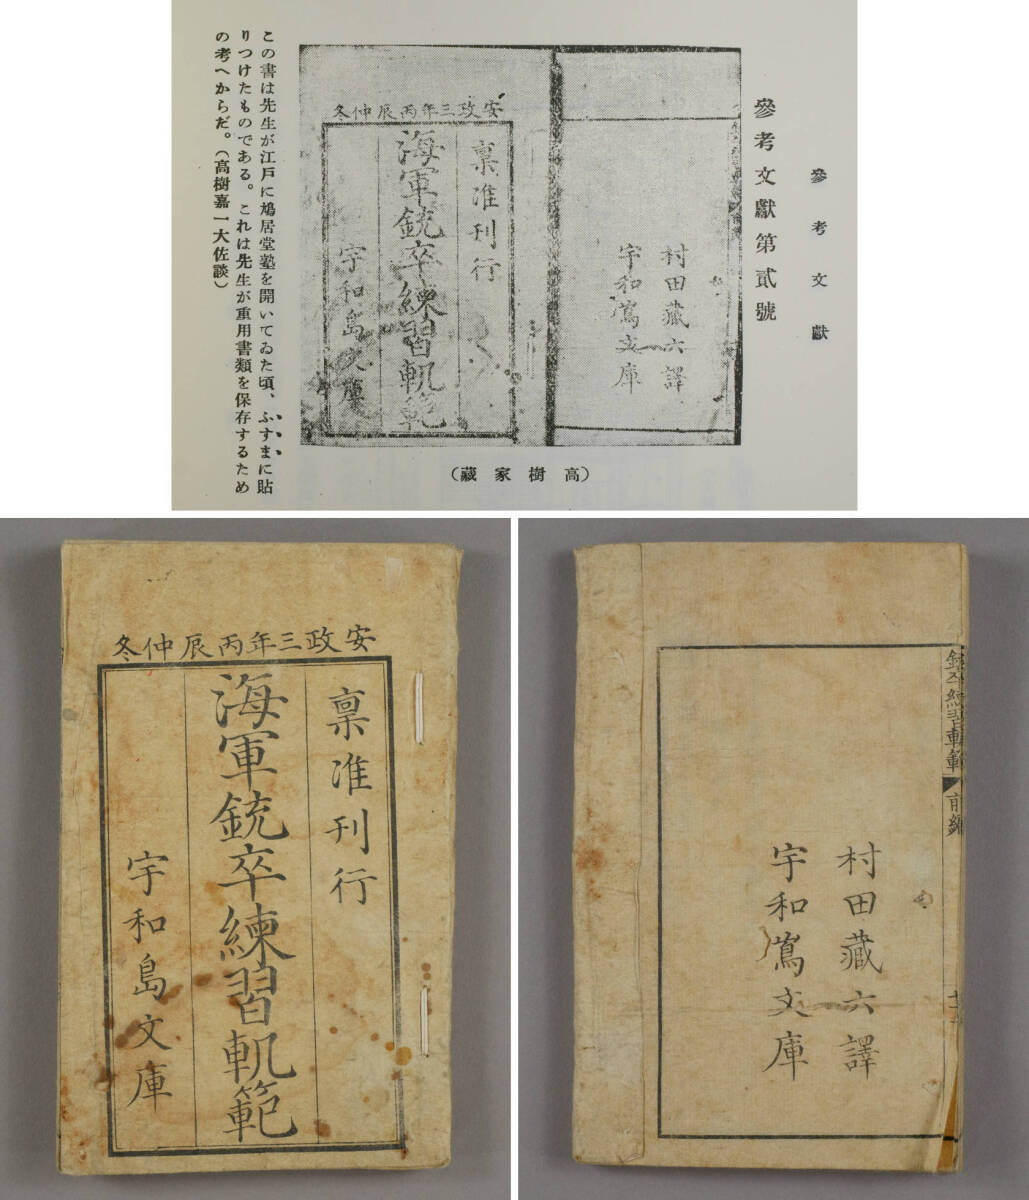 參考文獻
參考文獻第貳號
安政三年丙辰仲冬
稟准刊行
海軍銃卒練習軌範
宇和島文庫
村田藏六譯
宇和嶌文庫
(高樹家藏)
この書は先生が江戸に鳩居堂塾を開いてゐた頃、ふすまに貼
りつけたものである。これは先生が重用書類を保存するため
の考へからだ。(高樹嘉一大佐談)
安政三年丙辰仲冬
稟准刊行
海軍銃卒練習軌範
宇和島文庫
銃卒練習軌範 前編
村田藏六譯
宇和嶌文庫